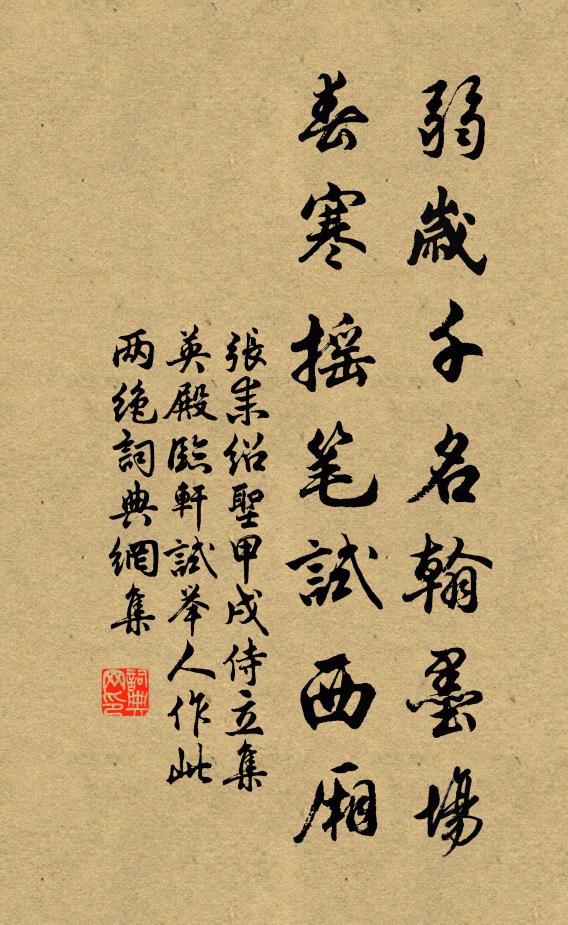 弱歲千名翰墨場
春寒摇笔試西厢
張耒紹聖甲戌侍立集
英殿臨軒試举人作此
两绝詞典網集
詞典网印